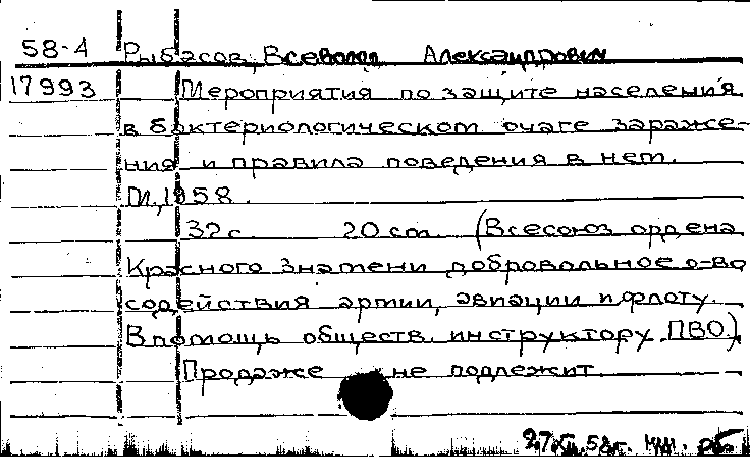 58-4 Рыбасов, Всеволод Александрович
17993 Мероприятия по защите населения
в бактериологическом очаге зараже-
ния и правила поведения в нем.
М., 1958.
32 с. 20 см. (Всесоюз. ордена
Красного Знамени добровольное о-во
содействия армии, авиации и флоту.
В помощь обществ. инструктору ПВО.)
Продаже не подлежит.
58г.